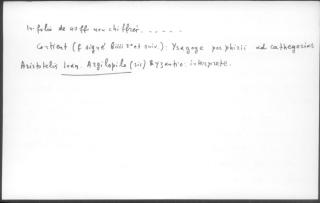 In-folio de 40 ff non chiffrés. . . . . .
Contient (f signé Biiii r° et suiv): Ysagoge porphirii ad cathegorias
Aristotelis Ioan. Argilopilo (sic) Byzantio interprete.